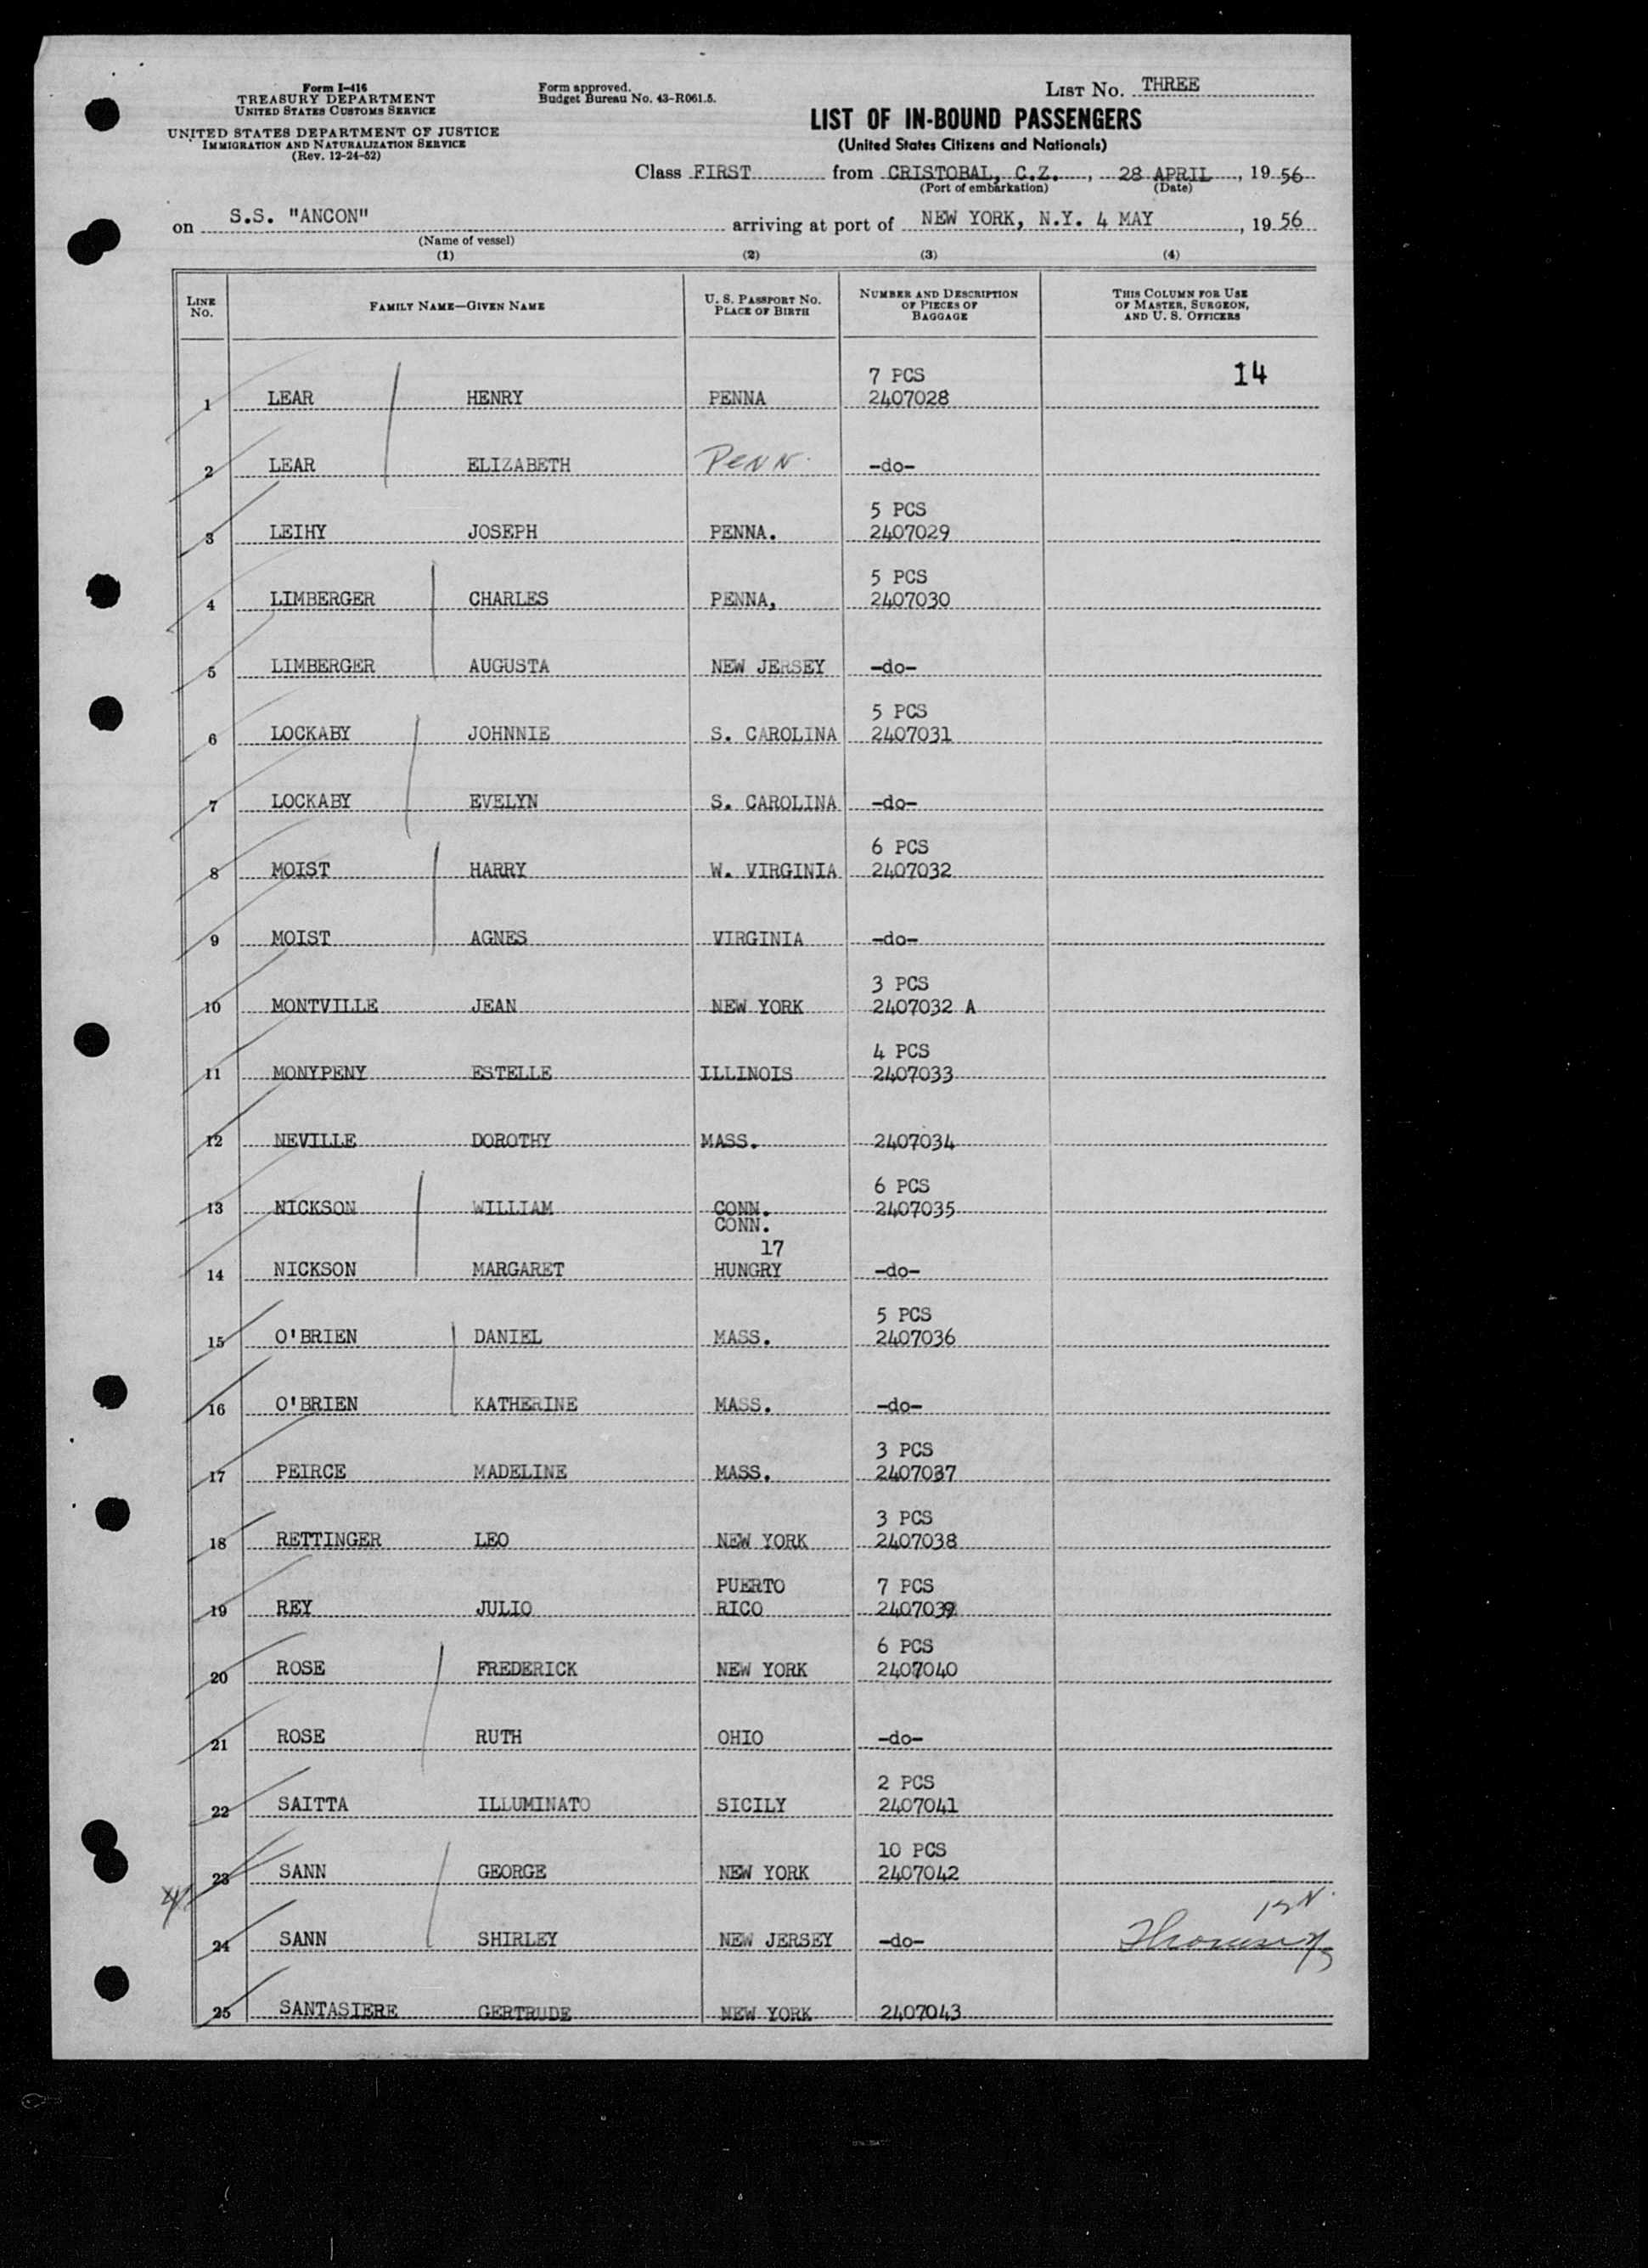 Form I-416
TREASURY DEPARTMENT
UNITED STATES CUSTOMS SERVICE
UNITED STATES DEPARTMENT OF JUSTICE
IMMIGRATION AND NATURALIZATION SERVICE
(Rev. 12-24-52)
Form approved.
Budget Bureau No. 43-R061.5.
LIST No. THREE
LIST OF IN-BOUND PASSENGERS
(United States Citizens and Nationals)
Class FIRST from CRISTOBAL, C.Z., 28 APRIL, 1956
(Port of embarkation) (Date)
on S.S. "ANCON" arriving at port of NEW YORK, N.Y. 4 MAY, 1956
(Name of vessel)
(1) (2) (3) (4)
LINE No. FAMILY NAME—GIVEN NAME U. S. PASSPORT No. PLACE OF BIRTH NUMBER AND DESCRIPTION OF PIECES OF BAGGAGE THIS COLUMN FOR USE OF MASTER, SURGEON, AND U. S. OFFICERS
7 PCS 14
1 LEAR HENRY PENNA 2407028
2 LEAR ELIZABETH PENN. -do-
5 PCS
3 LEIHY JOSEPH PENNA. 2407029
5 PCS
4 LIMBERGER CHARLES PENNA, 2407030
5 LIMBERGER AUGUSTA NEW JERSEY -do-
5 PCS
6 LOCKABY JOHNNIE S. CAROLINA 2407031
7 LOCKABY EVELYN S. CAROLINA -do-
6 PCS
8 MOIST HARRY W. VIRGINIA 2407032
9 MOIST AGNES VIRGINIA -do-
3 PCS
10 MONTVILLE JEAN NEW YORK 2407032 A
4 PCS
11 MONYPENY ESTELLE ILLINOIS 2407033
12 NEVILLE DOROTHY MASS. 2407034
6 PCS
13 NICKSON WILLIAM CONN. 2407035
CONN.
17
14 NICKSON MARGARET HUNGRY -do-
5 PCS
15 O'BRIEN DANIEL MASS. 2407036
16 O'BRIEN KATHERINE MASS. -do-
3 PCS
17 PEIRCE MADELINE MASS. 2407037
3 PCS
18 RETTINGER LEO NEW YORK 2407038
PUERTO 7 PCS
19 REY JULIO RICO 2407039
6 PCS
20 ROSE FREDERICK NEW YORK 2407040
21 ROSE RUTH OHIO -do-
2 PCS
22 SAITTA ILLUMINATO SICILY 2407041
10 PCS
23 SANN GEORGE NEW YORK 2407042
24 SANN SHIRLEY NEW JERSEY -do-
25 SANTASIERE GERTRUDE NEW YORK 2407043